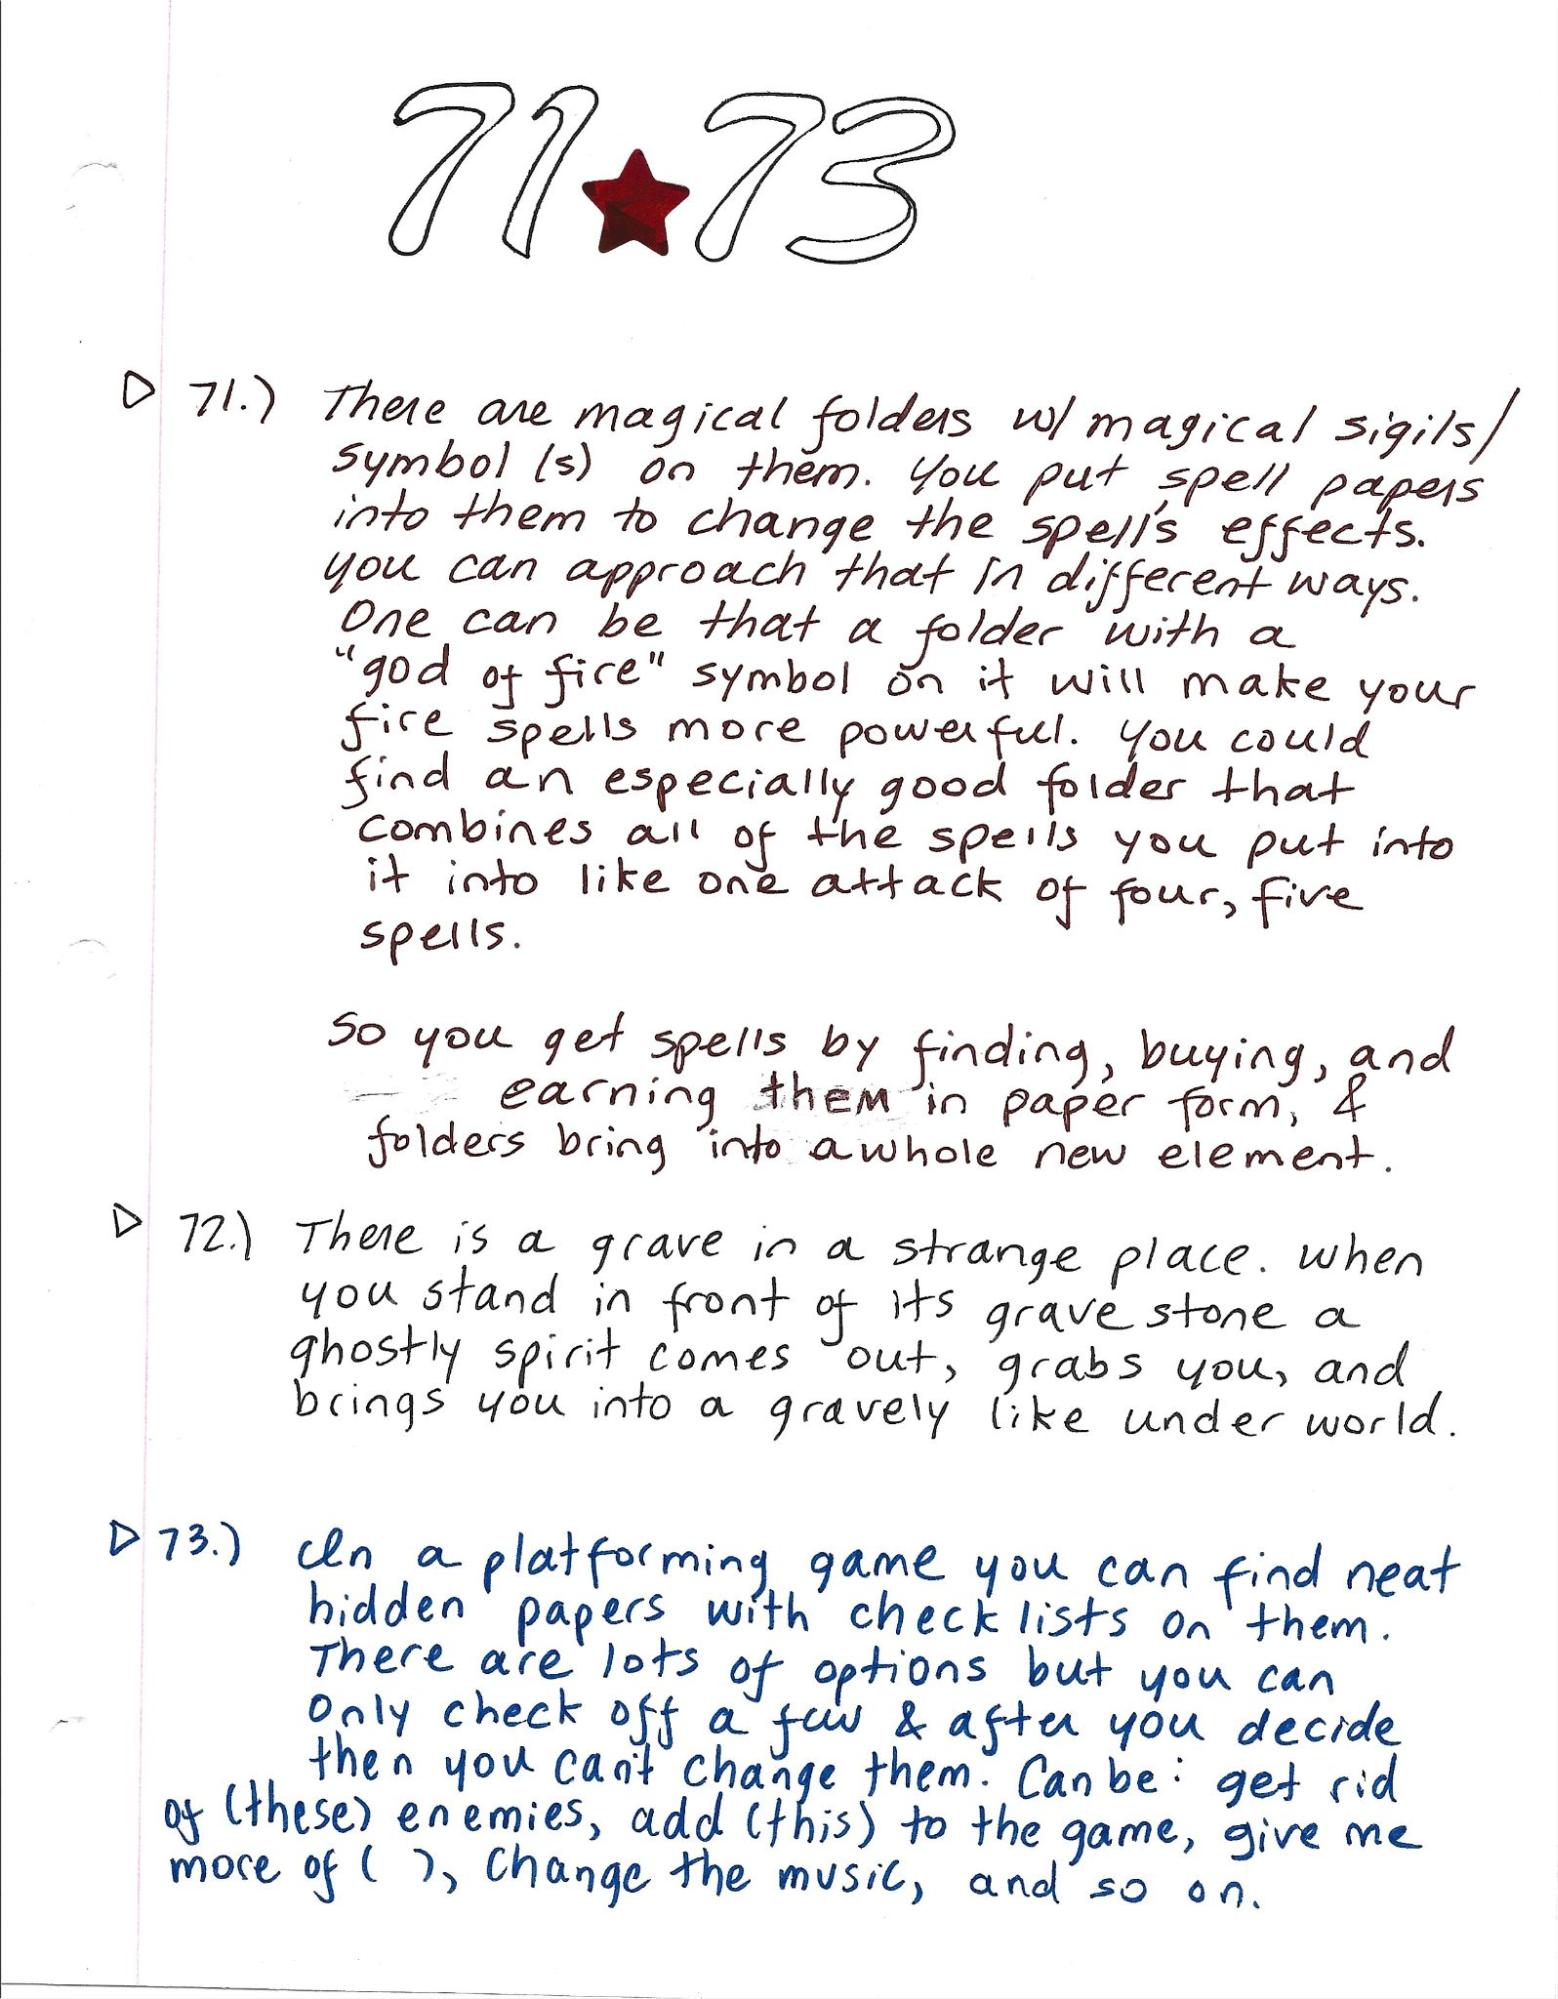 71 73
71.) There are magical folders w/ magical sigils/
symbol(s) on them. You put spell papers
into them to change the spell's effects.
You can approach that in different ways.
One can be that a folder with a
"god of fire" symbol on it will make your
fire spells more powerful. You could
find an especially good folder that
combines all of the spells you put into
it into like one attack of four, five
spells.
So you get spells by finding, buying, and
earning them in paper form, &
folders bring into a whole new element.
72.) There is a grave in a strange place. When
you stand in front of its grave stone a
ghostly spirit comes out, grabs you, and
brings you into a gravely like under world.
73.) In a platforming game you can find neat
hidden papers with check lists on them.
There are lots of options but you can
only check off a few & after you decide
then you can't change them. Can be: get rid
of (these) enemies, add (this) to the game, give me
more of ( ), Change the music, and so on.